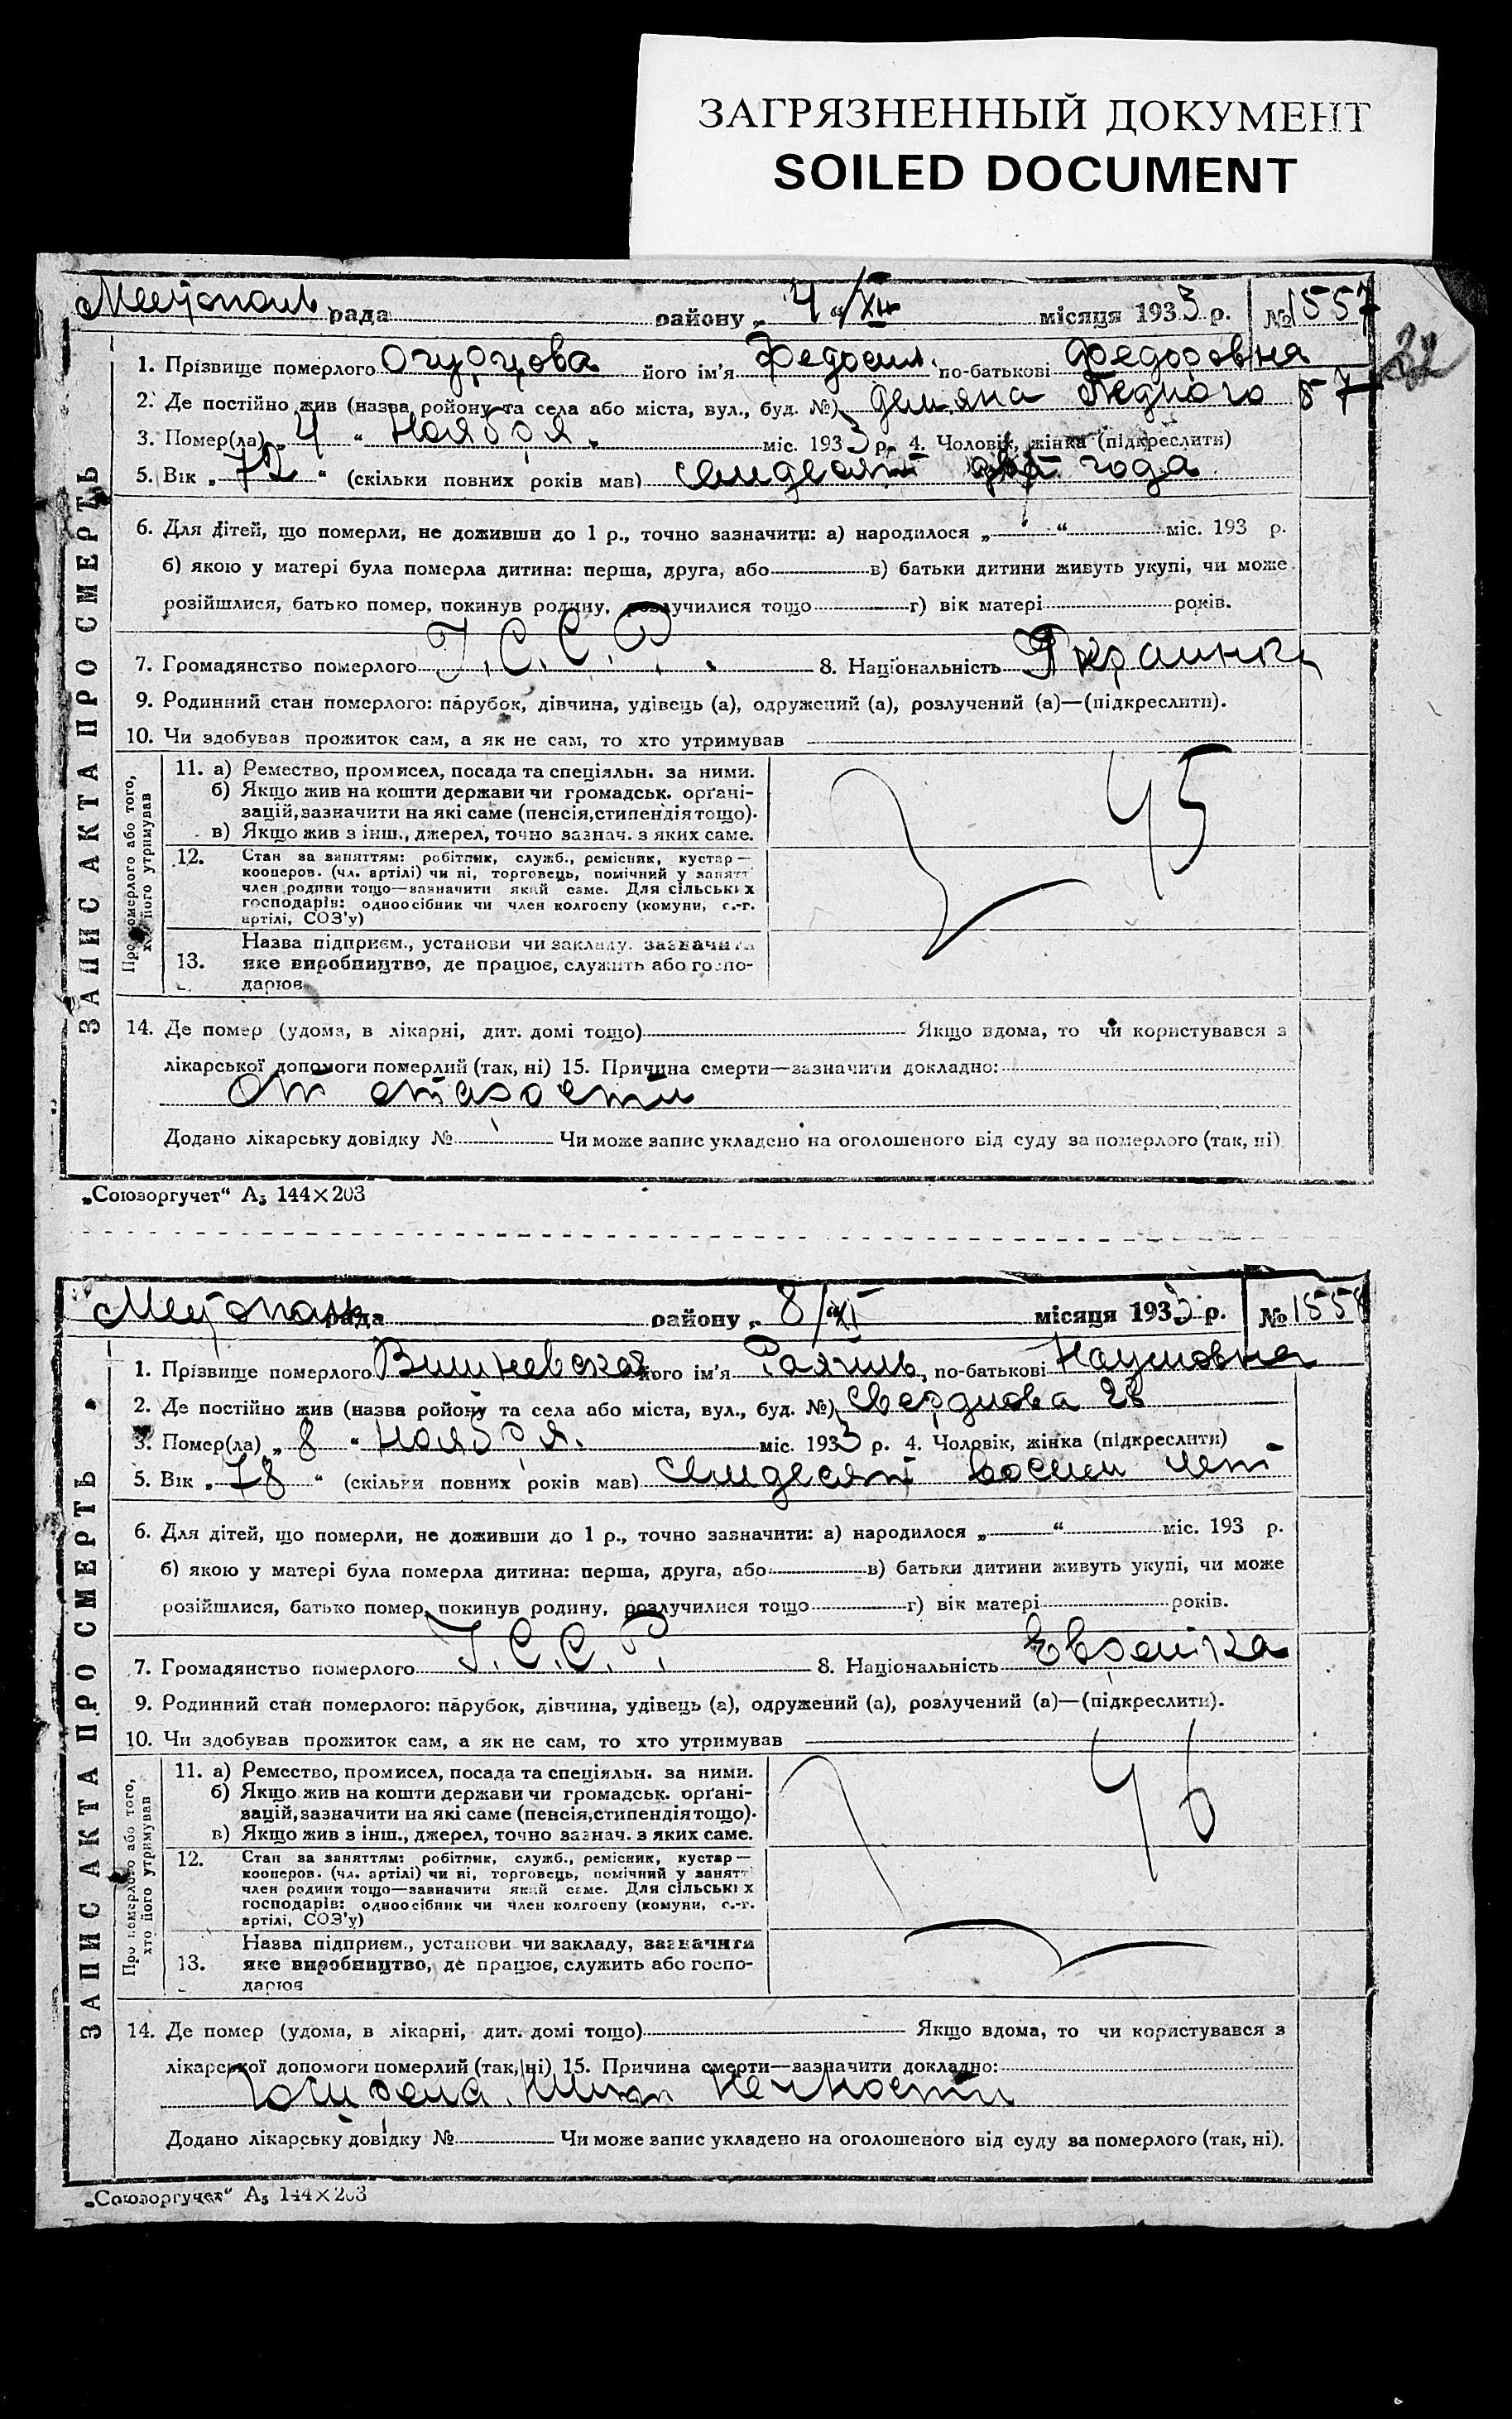 ЗАГРЯЗНЕННЫЙ ДОКУМЕНТ
SOILED DOCUMENT
рада району „ 4 “ /XII місяця 1933 р. № 1557
32
1. Прізвище померлого Огурцова його ім’я Федосия по-батькові Федоровна
2. Де постійно жив (назва ройону та села або міста, вул., буд. №) Демяна Бедного 57
3. Помер(ла) „ 4 “ Ноября міс. 1933 р. 4. Чоловік, жінка (підкреслити)
5. Вік „ 72 “ (скільки повних років мав) семидесят два года
6. Для дітей, що померли, не доживши до 1 р., точно зазначити: а) народилося „ “ міс. 193 р.
б) якою у матері була померла дитина: перша, друга, або в) батьки дитини живуть укупі, чи може
розійшлися, батько помер, покинув родину, розлучилися тощо г) вік матері років.
7. Громадянство померлого У.С.С.Р. 8. Національність Украинка
9. Родинний стан померлого: парубок, дівчина, удівець (а), одружений (а), розлучений (а)—(підкреслити).
10. Чи здобував прожиток сам, а як не сам, то хто утримував
Про померлого або того, хто його утримував
11. а) Ремество, промисел, посада та спеціяльн. за ними.
б) Якщо жив на кошти держави чи громадськ. орґані-
зацій, зазначити на які саме (пенсія, стипендія тощо).
в) Якщо жив з інш., джерел, точно зазнач. з яких саме.
45
12. Стан за заняттям: робітник, служб., ремісник, кустар—
кооперов. (чл. артілі) чи ні, торговець, помічний у занятт
член родини тощо—зазначити який саме. Для сільських
господарів: одноосібник чи член колгоспу (комуни, с.-г.
артілі, СОЗ’у)
13. Назва підприєм., установи чи закладу, зазначити
яке виробництво, де працює, служить або госпо-
дарює
14. Де помер (удома, в лікарні, дит. домі тощо) Якщо вдома, то чи користувався з
лікарської допомоги померлий (так, ні) 15. Причина смерти—зазначити докладно:
От старости
Додано лікарську довідку № Чи може запис укладено на оголошеного від суду за померлого (так, ні)
ЗАПИС АКТА ПРО СМЕРТЬ
„Союзоргучет“ А5 144×203
рада району „ 8 “ /XI місяця 1933 р. № 1558
1. Прізвище померлого Вишневская його ім’я Рахиль по-батькові Наумовна
2. Де постійно жив (назва ройону та села або міста, вул., буд. №) Свердлова 28
3. Помер(ла) „ 8 “ Ноября. міс. 1933 р. 4. Чоловік, жінка (підкреслити)
5. Вік „ 78 “ (скільки повних років мав) семидесят восем лет
6. Для дітей, що померли, не доживши до 1 р., точно зазначити: а) народилося „ “ міс. 193 р.
б) якою у матері була померла дитина: перша, друга, або в) батьки дитини живуть укупі, чи може
розійшлися, батько помер, покинув родину, розлучилися тощо г) вік матері років.
7. Громадянство померлого У.С.С.Р. 8. Національність Еврейка
9. Родинний стан померлого: парубок, дівчина, удівець (а), одружений (а), розлучений (а)—(підкреслити).
10. Чи здобував прожиток сам, а як не сам, то хто утримував
Про померлого або того, хто його утримував
11. а) Ремество, промисел, посада та спеціяльн. за ними.
б) Якщо жив на кошти держави чи громадськ. орґані-
зацій, зазначити на які саме (пенсія, стипендія тощо).
в) Якщо жив з інш., джерел, точно зазнач. з яких саме.
46
12. Стан за заняттям: робітник, служб., ремісник, кустар—
кооперов. (чл. артілі) чи ні, торговець, помічний у занятт
член родини тощо—зазначити який саме. Для сільських
господарів: одноосібник чи член колгоспу (комуни, с.-г.
артілі, СОЗ’у)
13. Назва підприєм., установи чи закладу, зазначити
яке виробництво, де працює, служить або госпо-
дарює
14. Де помер (удома, в лікарні, дит. домі тощо) Якщо вдома, то чи користувався з
лікарської допомоги померлий (так, ні) 15. Причина смерти—зазначити докладно:
Додано лікарську довідку № Чи може запис укладено на оголошеного від суду за померлого (так, ні).
ЗАПИС АКТА ПРО СМЕРТЬ
„Союзоргучет“ А5 144×203